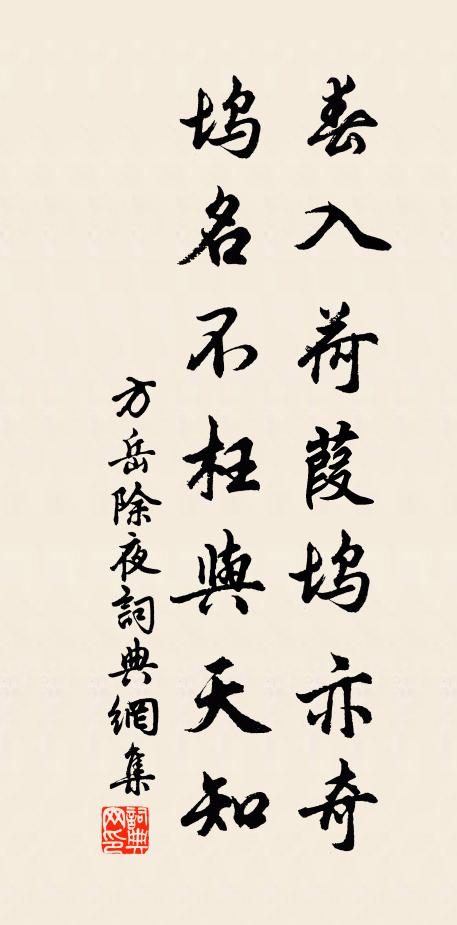 春入荷葭塢亦奇
塢名不枉與天知
方岳除夜詞典網集
詞典
网印